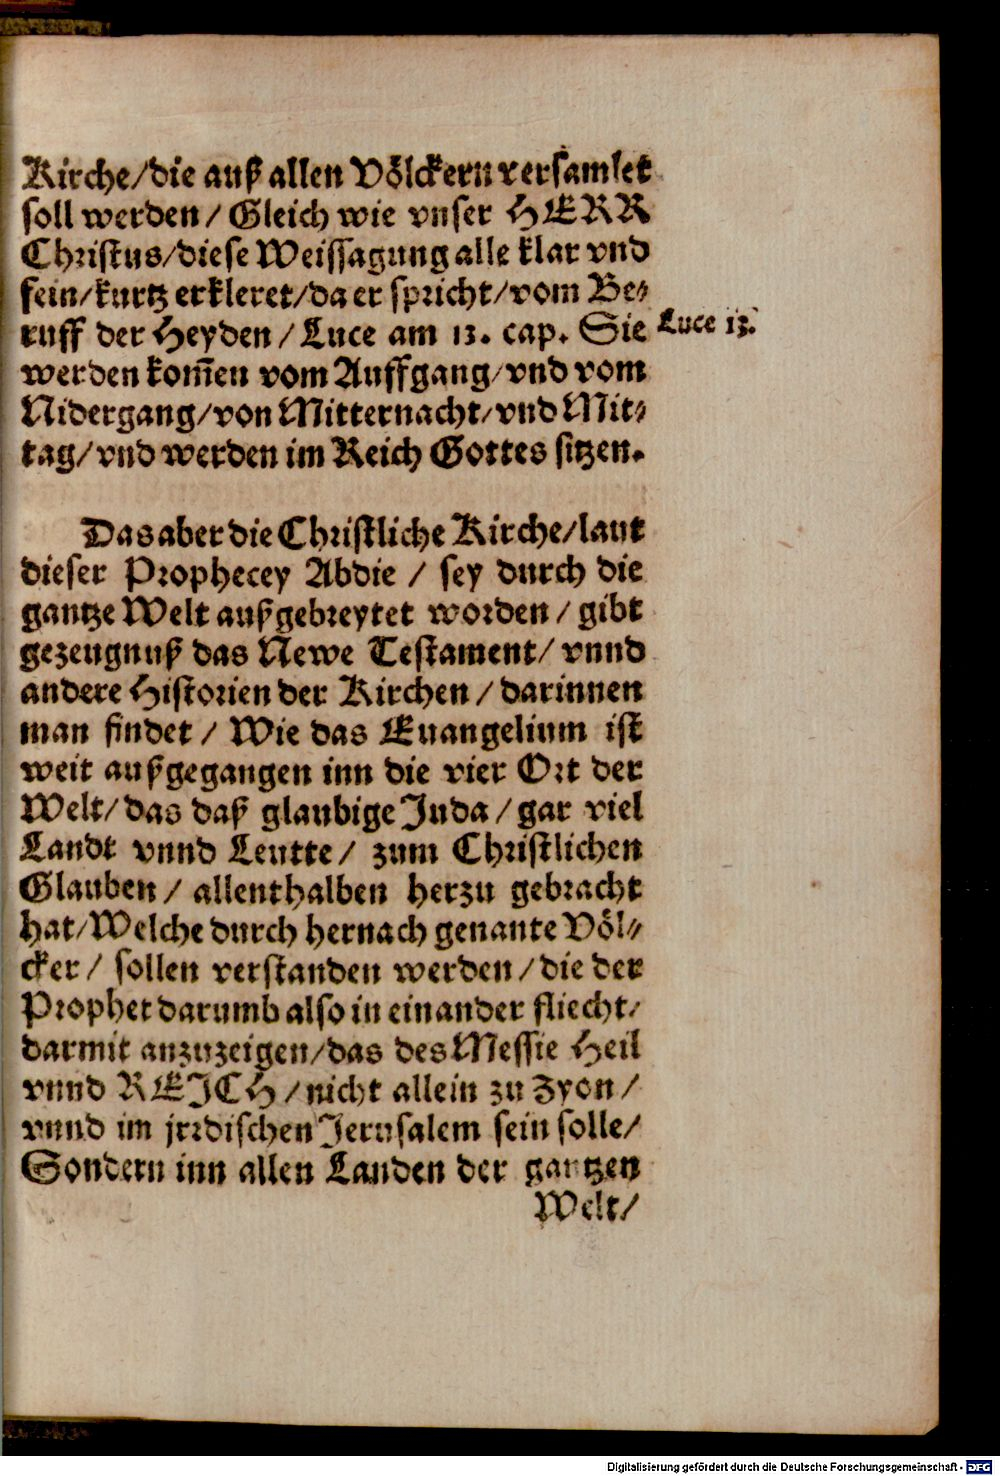 Kirche/die auß allen Völckern versamlet
soll werden/ Gleich wie vnser HERR
Christus/diese Weissagung alle klar vnd
fein/kurtz erkleret/da er spricht/vom Be⸗
ruff der Heyden/ Luce am 13. cap. Sie
Luce 13.
werden kom̄en vom Auffgang/vnd vom
Nidergang/von Mitternacht/vnd Mit⸗
tag/vnd werden im Reich Gottes sitzen.
Das aber die Christliche Kirche/laut
dieser Prophecey Abdie / sey durch die
gantze Welt außgebreytet worden/ gibt
gezeugnuß das Newe Testament/ vnnd
andere Historien der Kirchen / darinnen
man findet / Wie das Euangelium ist
weit außgegangen inn die vier Ort der
Welt/das daß glaubige Juda / gar viel
Landt vnnd Leutte/ zum Christlichen
Glauben/ allenthalben herzu gebracht
hat/Welche durch hernach genante Völ⸗
cker/ sollen verstanden werden/die der
Prophet darumb also in einander fliecht/
darmit anzuzeigen/das des Messie Heil
vnnd REJCH/nicht allein zu Zyon/
vnnd im jrrdischen Jerusalem sein solle/
Sondern inn allen Landen der gantzen
Welt/
Digitalisierung gefördert durch die Deutsche Forschungsgemeinschaft - DFG